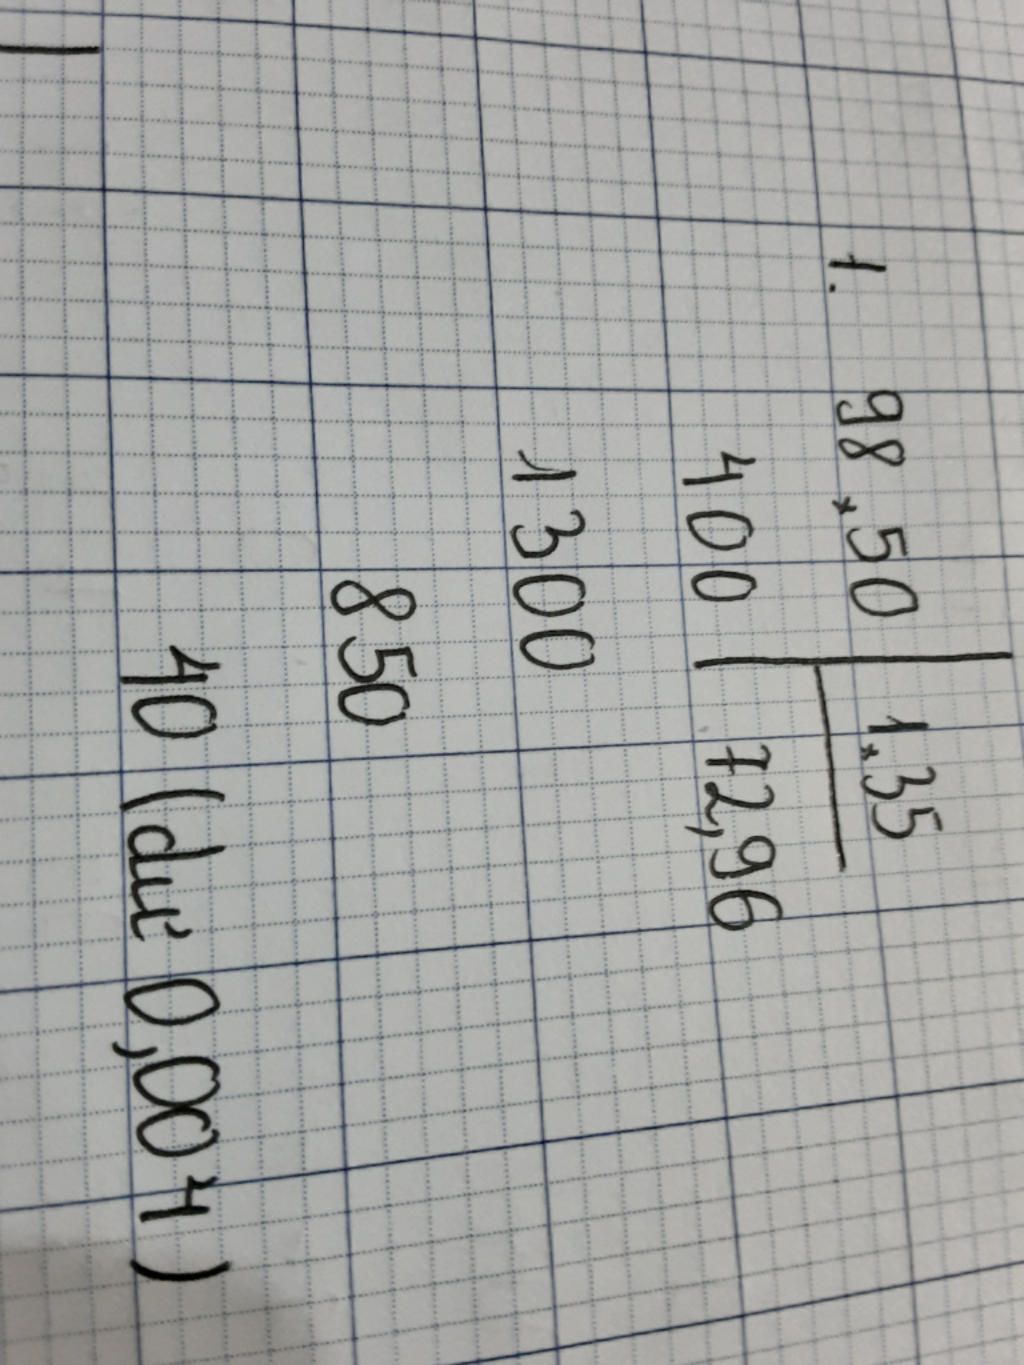 1. 98,50 1,35
400 72,96
1300
850
40 (dư 0,004)